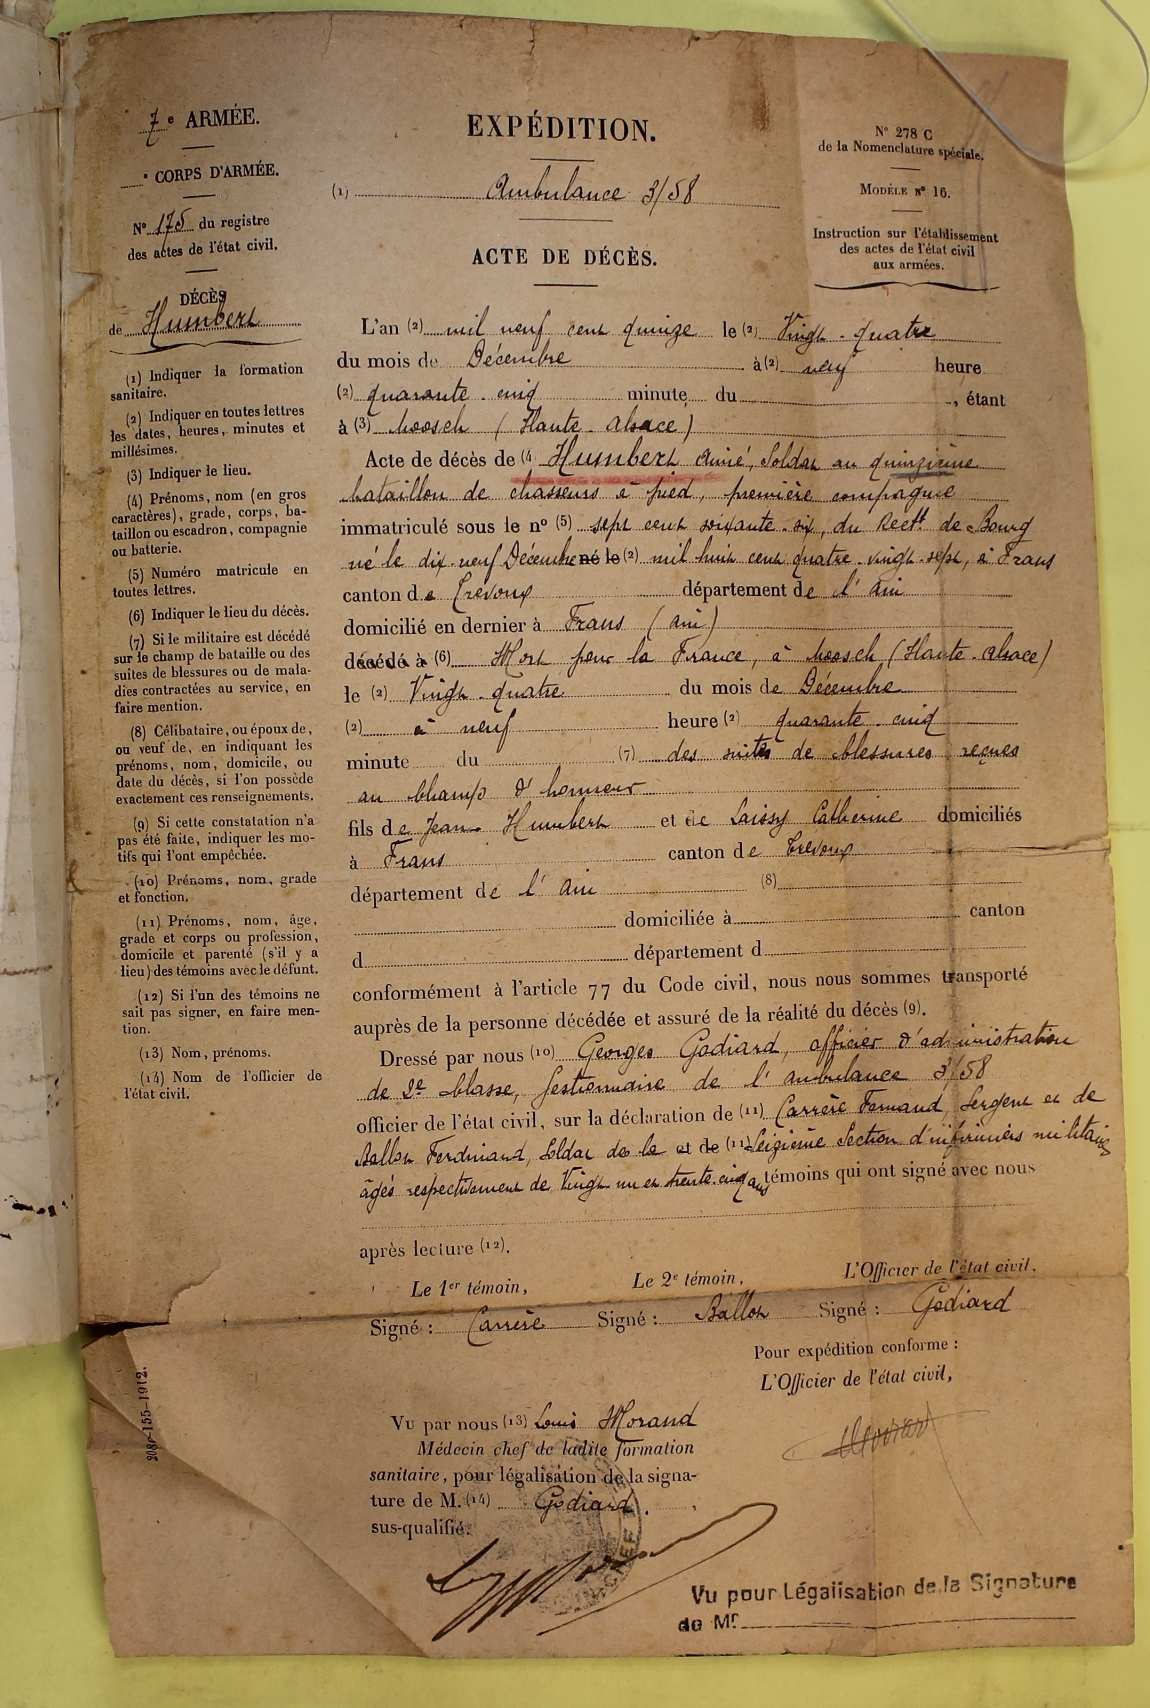 7e ARMÉE.
e CORPS D'ARMÉE.
N° 175 du registre
des actes de l'état civil.
DÉCÈS
de Humbert
(1) Indiquer la formation
sanitaire.
(2) Indiquer en toutes lettres
les dates, heures, minutes et
millésimes.
(3) Indiquer le lieu.
(4) Prénoms, nom (en gros
caractères), grade, corps, ba-
taillon ou escadron, compagnie
ou batterie.
(5) Numéro matricule en
toutes lettres.
(6) Indiquer le lieu du décès.
(7) Si le militaire est décédé
sur le champ de bataille ou des
suites de blessures ou de mala-
dies contractées au service, en
faire mention.
(8) Célibataire, ou époux de,
ou veuf de, en indiquant les
prénoms, nom, domicile, ou
date du décès, si l'on possède
exactement ces renseignements.
(9) Si cette constatation n'a
pas été faite, indiquer les mo-
tifs qui l'ont empêchée.
(10) Prénoms, nom, grade
et fonction.
(11) Prénoms, nom, âge,
grade et corps ou profession,
domicile et parenté (s'il y a
lieu) des témoins avec le défunt.
(12) Si l'un des témoins ne
sait pas signer, en faire men-
tion.
(13) Nom, prénoms.
(14) Nom de l'officier de
l'état civil.
2080-155-1912.
EXPÉDITION.
(1) Ambulance 3/58
ACTE DE DÉCÈS.
N° 278 C
de la Nomenclature spéciale.
MODÈLE N° 16.
Instruction sur l'établissement
des actes de l'état civil
aux armées.
L'an (2) mil neuf cent quinze le (2) Vingt-quatre
du mois de Décembre à (2) neuf heure
(2) quarante-cinq minute du , étant
à (3) Moosch (Haute-Alsace)
Acte de décès de (4 Humbert Aimé, Soldat au quinzième
bataillon de chasseurs à pied, première compagnie
immatriculé sous le n° (5) sept cent soixante-six, du Rect de Bourg
né le dix-neuf Décembre né le (2) mil huit cent quatre-vingt-sept, à Frans
canton de Trévoux département de l'Ain
domicilié en dernier à Frans (Ain)
décédé à (6) Mort pour la France, à Moosch (Haute-Alsace)
le (2) Vingt-quatre du mois de Décembre
(2) à neuf heure (2) quarante-cinq
minute du (7) des suites de blessures reçues
au champ d'honneur
fils de Jean Humbert et de Laissy Catherine domiciliés
à Frans canton de Trévoux
département de l'Ain (8)
domiciliée à canton
d département d
conformément à l'article 77 du Code civil, nous nous sommes transporté
auprès de la personne décédée et assuré de la réalité du décès (9).
Dressé par nous (10) Georges Godiard, officier d'administration
de 2e Classe, Gestionnaire de l'ambulance 3/58
officier de l'état civil, sur la déclaration de (11) Carrère Fernand, Sergent et de
Ballot Ferdinand, Soldat de la et de (11) Seizième Section d'infirmiers militaires
âgés respectivement de Vingt un et trente-cinq ans témoins qui ont signé avec nous
après lecture (12).
Le 1er témoin, Le 2e témoin, L'Officier de l'état civil.
Signé : Carrère Signé : Ballot Signé : Godiard
Pour expédition conforme :
L'Officier de l'état civil,
Vu par nous (13) Louis Morand
Médecin chef de ladite formation
sanitaire, pour légalisation de la signa-
ture de M. (14) Godiard.
sus-qualifié.
Vu pour Légalisation de la Signature
de Mr